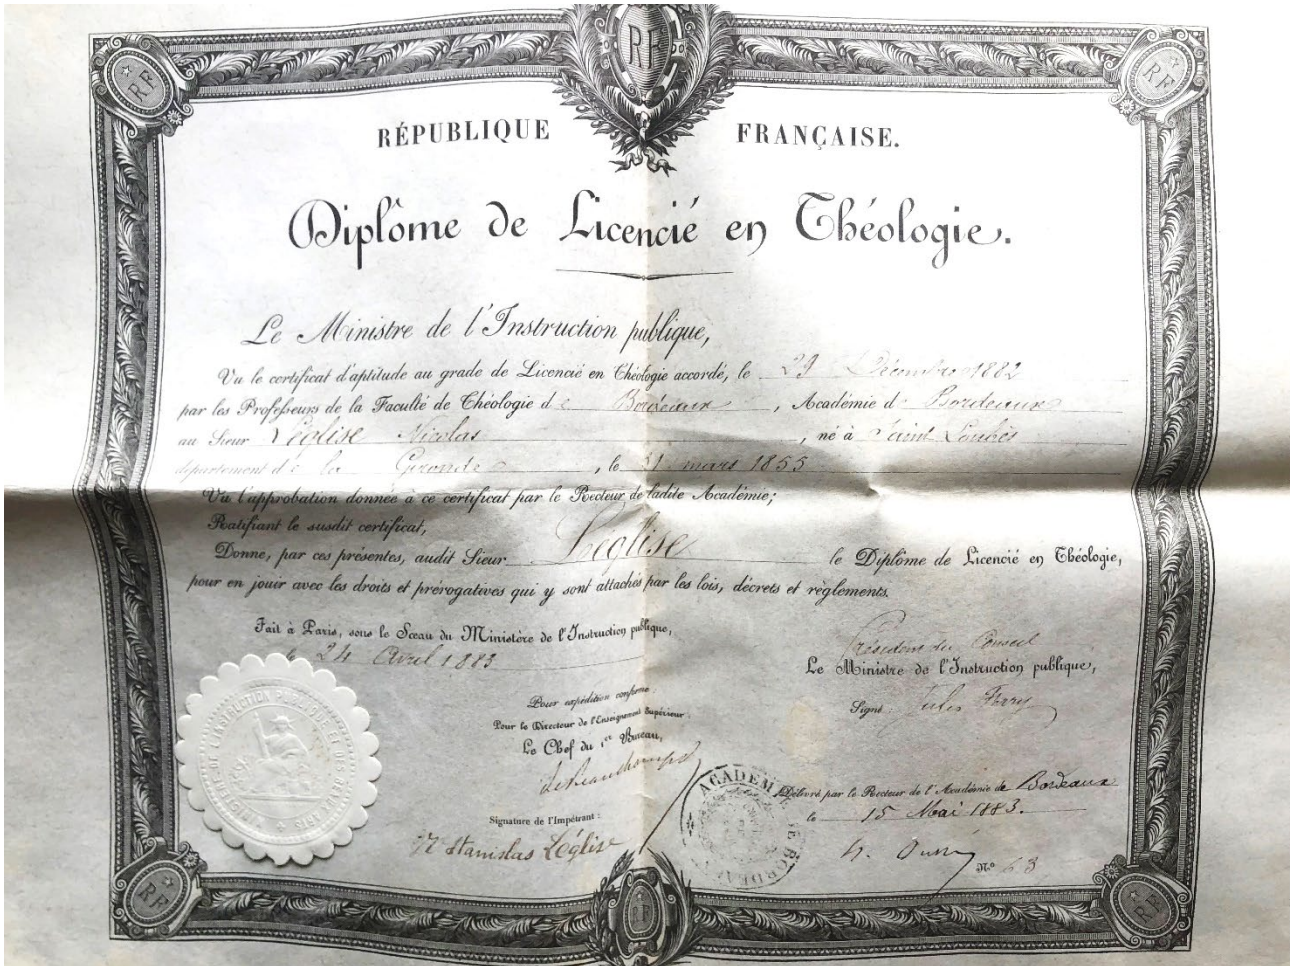 RF
RF
RF
RÉPUBLIQUE FRANÇAISE.
Diplôme de Licencié en Théologie.
Le Ministre de l'Instruction publique,
Vu le certificat d'aptitude au grade de Licencié en Théologie accordé, le 29 Décembre 1882
par les Professeurs de la Faculté de Théologie de Bordeaux, Académie d Bordeaux
au Sieur Léglise Nicolas, né à Saint Loubès
département de la Gironde, le mars 1855
Vu l'approbation donnée à ce certificat par le Recteur de ladite Académie;
Ratifiant le susdit certificat,
Donne, par ces présentes, audit Sieur Léglise le Diplôme de Licencié en Théologie,
pour en jouir avec les droits et prérogatives qui y sont attachés par les lois, décrets et règlements.
Fait à Paris, sous le Sceau du Ministère de l'Instruction publique,
le 24 Avril 1883
Président du Conseil
Le Ministre de l'Instruction publique,
Signé: Jules Ferry
Pour expédition conforme
Pour le Directeur de l'Enseignement Supérieur
Le Chef du 1er Bureau,
de Beauchamps
MINISTÈRE DE L'INSTRUCTION PUBLIQUE ET DES BEAUX ARTS
ACADÉMIE DE BORDEAUX
Délivré par le Recteur de l'Académie de Bordeaux
le 15 Mai 1883.
Signature de l'Impétrant:
N Stanislas Léglise
No 63
RF
RF
RF